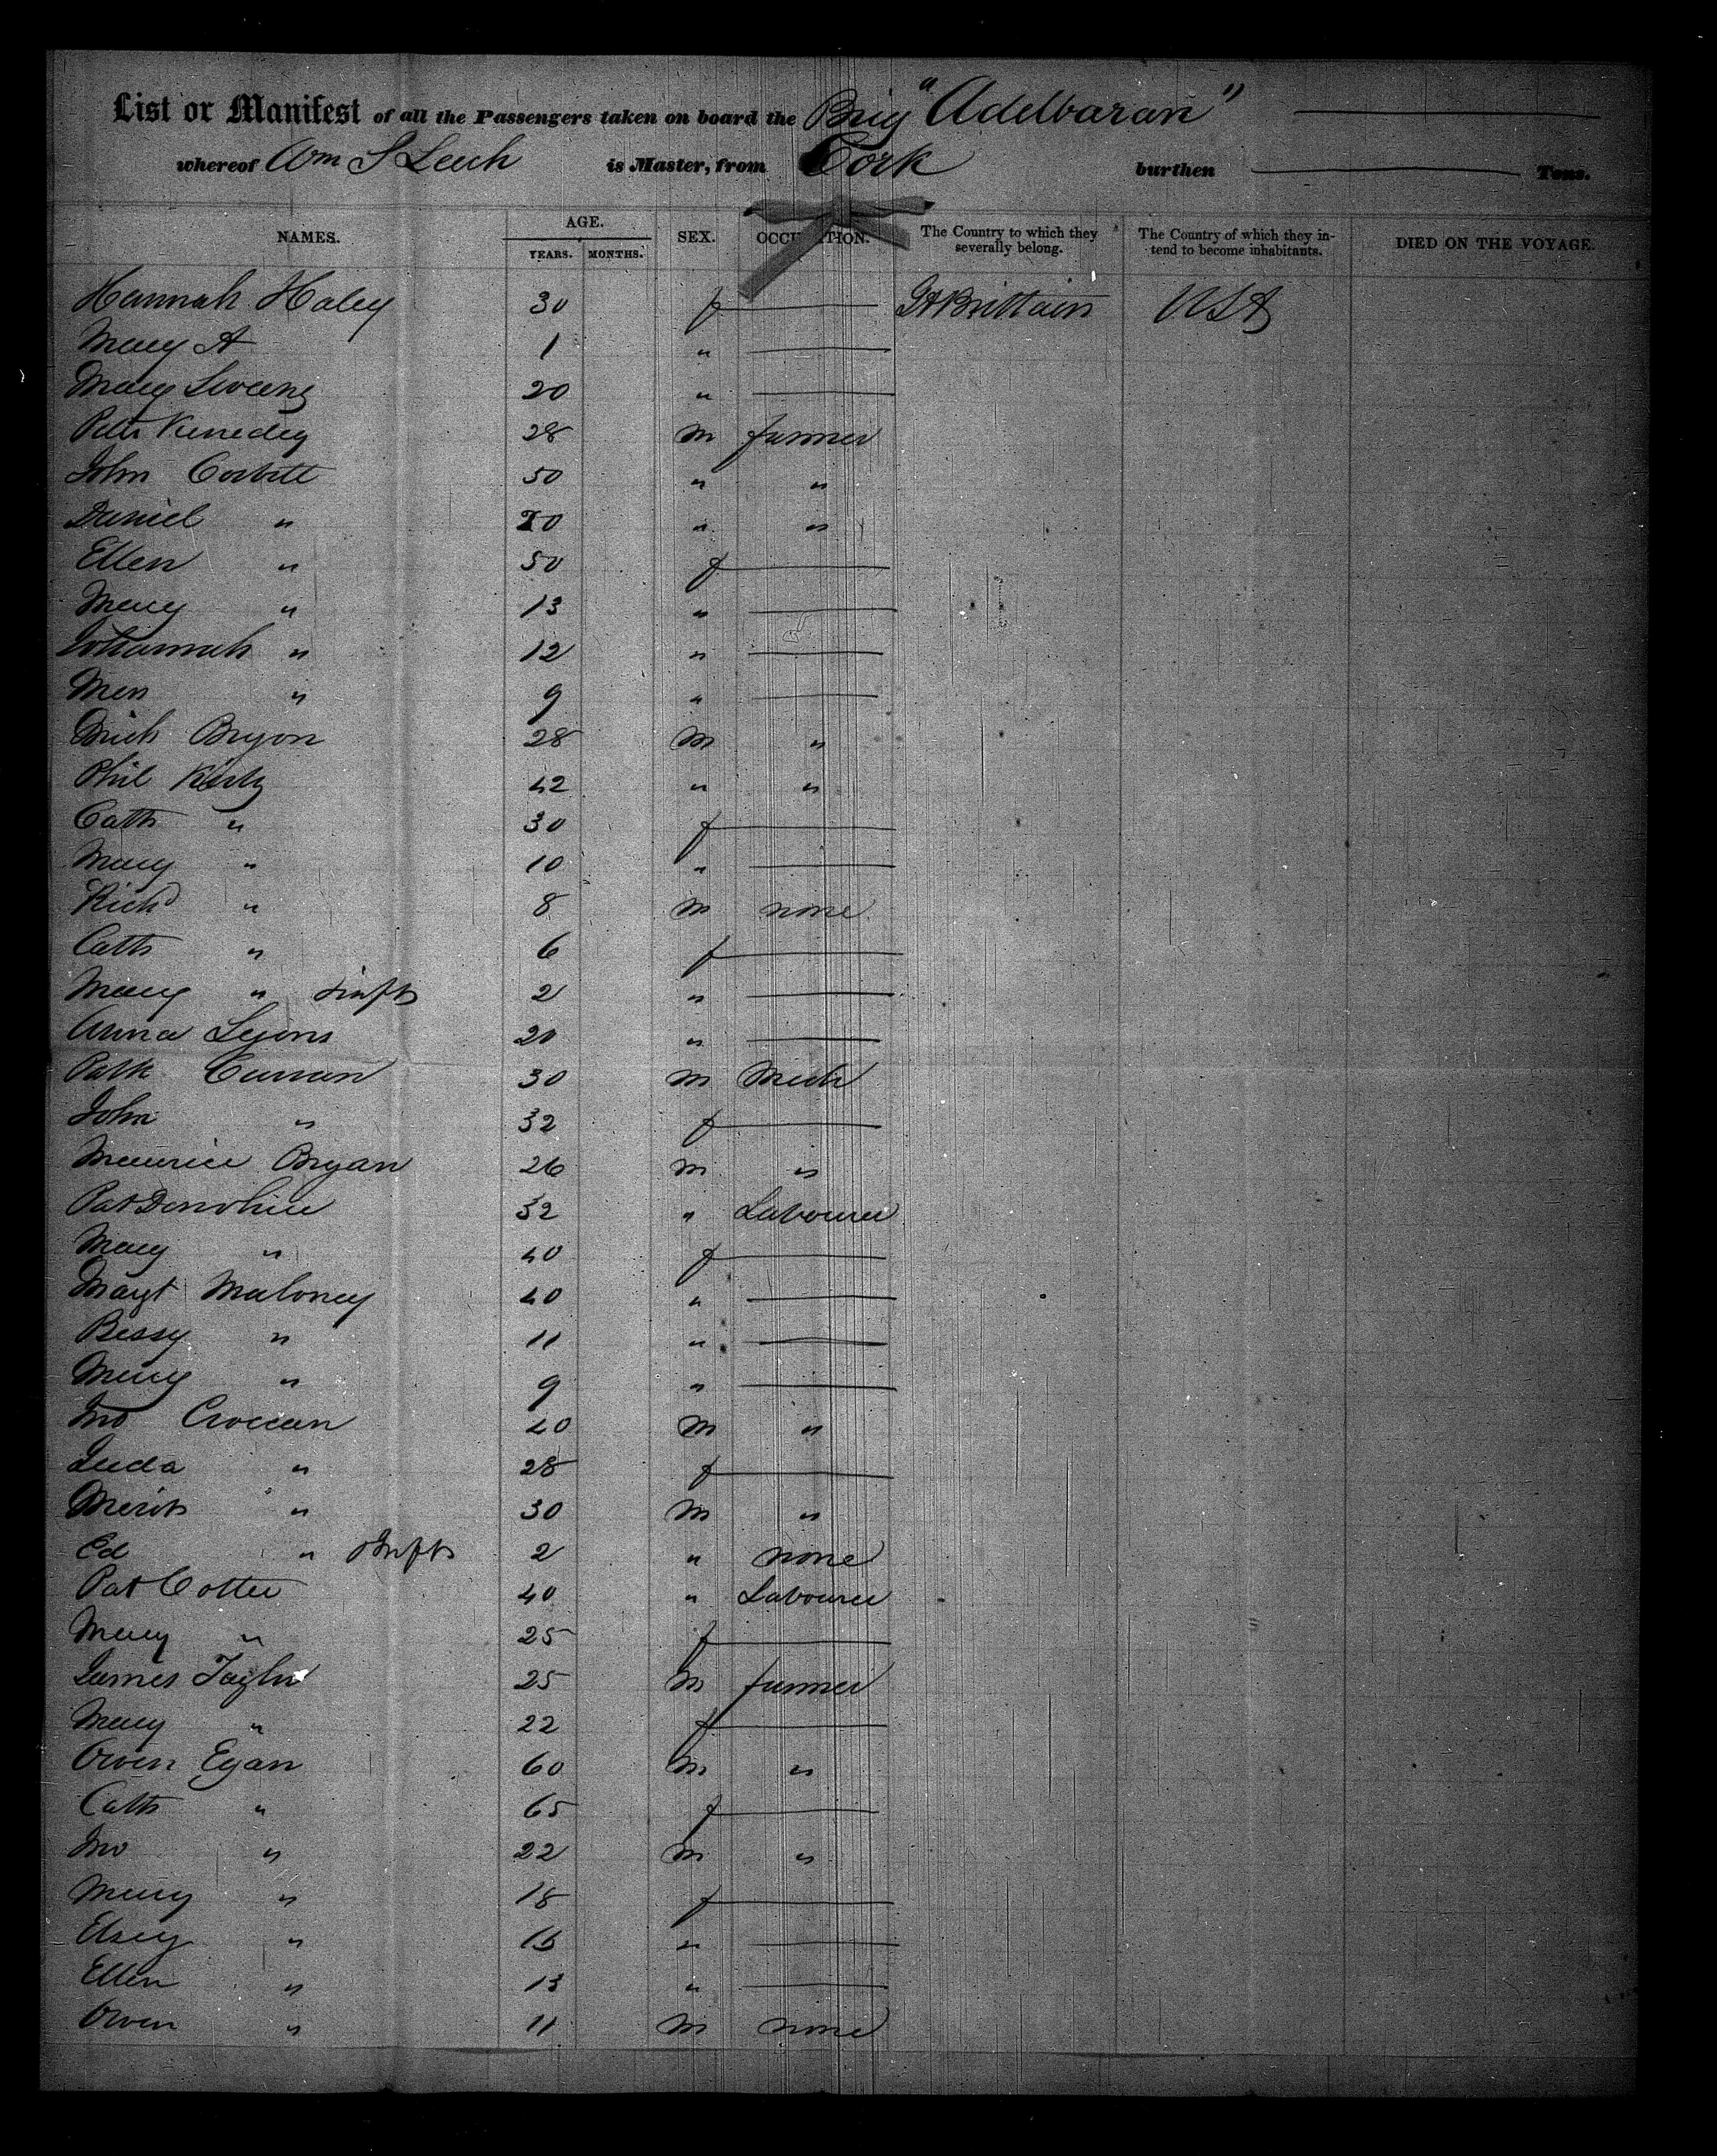 List or Manifest of all the Passengers taken on board the Brig "Adelbaran"
whereof Wm S Leech is Master, from Cork burthen Tons.
NAMES. AGE. YEARS. MONTHS. SEX. OCCUPATION. The Country to which they severally belong. The Country of which they intend to become inhabitants. DIED ON THE VOYAGE.
Hannah Haley 30 f Gt Brittain USA
Mary A 1 "
Mary Sweeny 20 "
Peter Kennedy 28 m farmer
John Corbett 50 " "
Daniel " 20 " "
Ellen " 50 f
Mary " 13 "
Johannah " 12 "
" 9 "
Mich Bryon 28 m "
Phil 42 " "
Cath " 30 f
Mary " 10 "
Richd " 8 m none
Cath " 6 f
Mary " Infts 2 "
Anna Lyons 20 "
Patk Curran 30 m Mech
John " 32 f
Maurice Bryan 26 m "
Pat Donohue 32 " Labourer
Mary " 40 f
Margt Maloney 40 "
Bessy " 11 "
Mary " 9 "
Jno 40 m "
" 28 f
" 30 m "
Ed " Infts 2 " none
Pat Cotter 40 " Labourer
Mary " 25 f
James Taylor 25 m farmer
Mary " 22 f
Owen Egan 60 m "
Cath " 65 f
Jno " 22 m "
Mary " 18 f
Elsey " 15 "
Ellen " 13 "
Owen " 11 m none